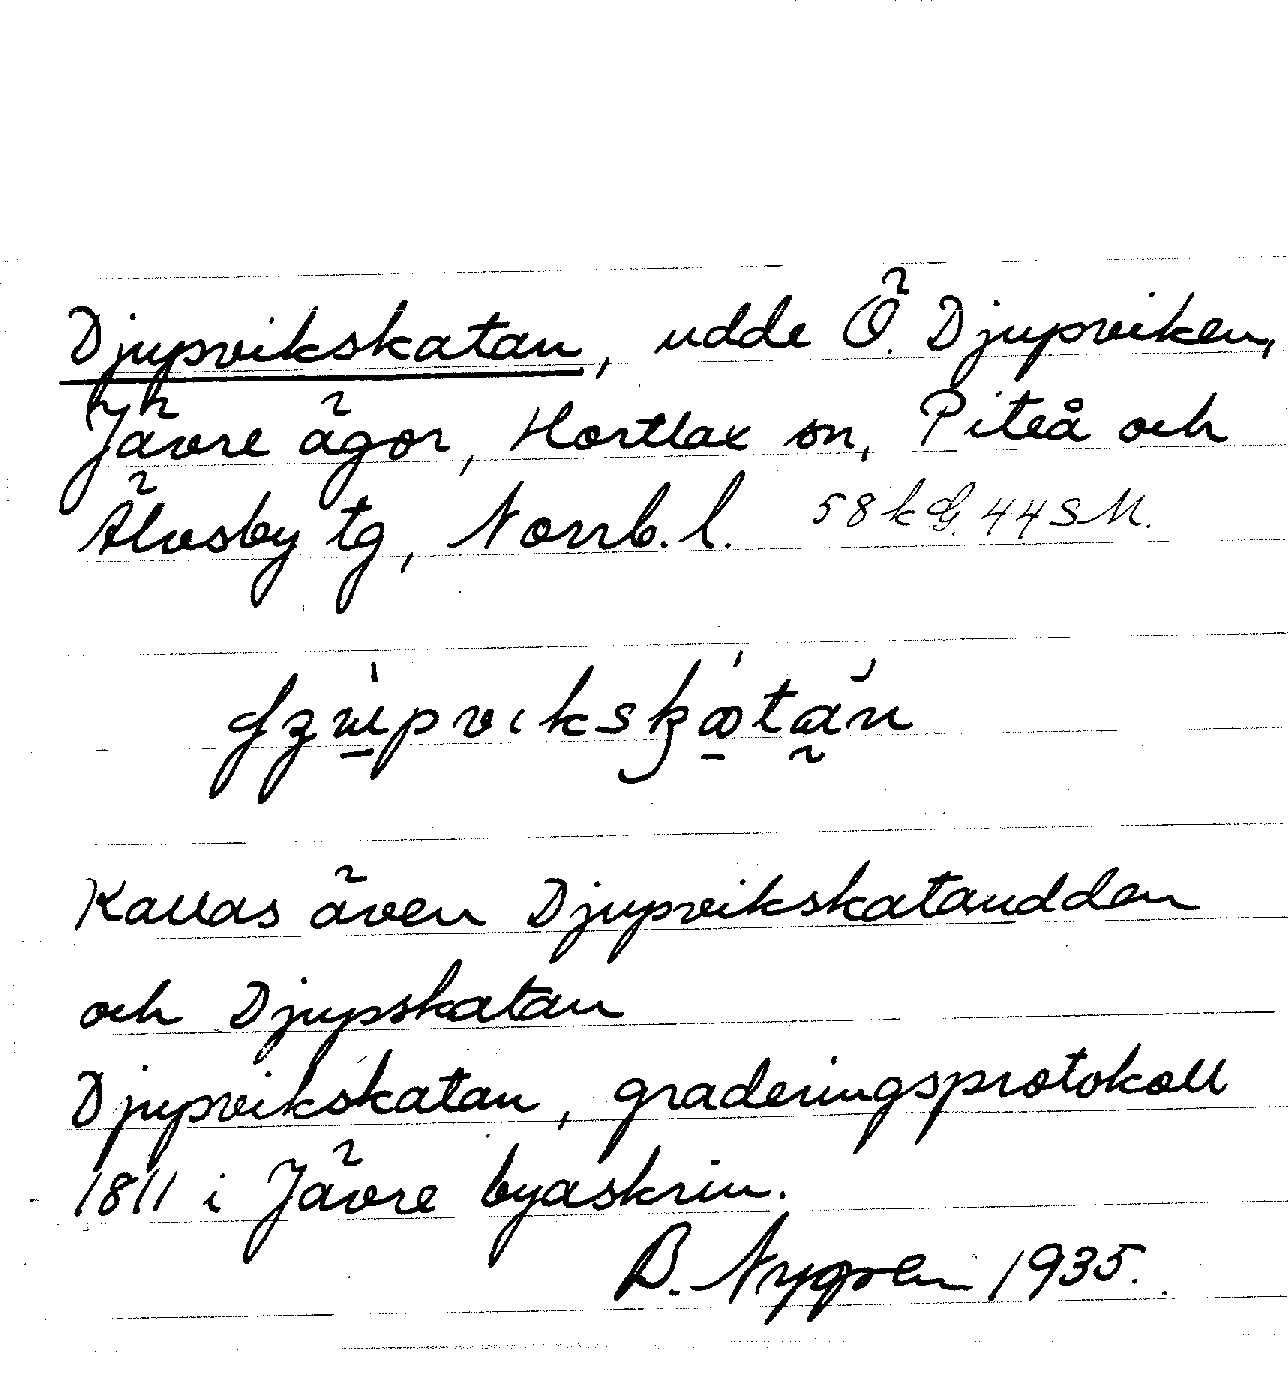 Djupvikskatan, udde Ö. Djupviken,
Jävre ägor, Hortlax sn, Piteå och
Älvsby tg, Norrb. l. 58 k G. 44 SM.
Kallas även Djupvikskatanudden
och Djupskatan
Djupvikskatan, graderingsprotokoll
1811 i Jävre byaskrin.
B. Nygren 1935.